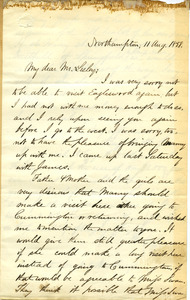 Northampton, 11 Aug. 1851.
My dear Mr. Seeley,
I was very sorry not
to be able to visit Eagleswood again, but I
had not with me money enough to do so
and I rely upon seeing you again
before I go to the west. I was sorry, too,
not to have the pleasure of bringing
up with me. I came up last Saturday
with James.
Father, Mother and the girls are
very desirous that Manny should
make a visit here going to
Cummington or returning, and wished
me to mention the matter to you. It
would give them still greater pleasure
if she could make a long visit here
instead of going to Cummington if
that would be agreeable to Miss
They think it possible that Miss